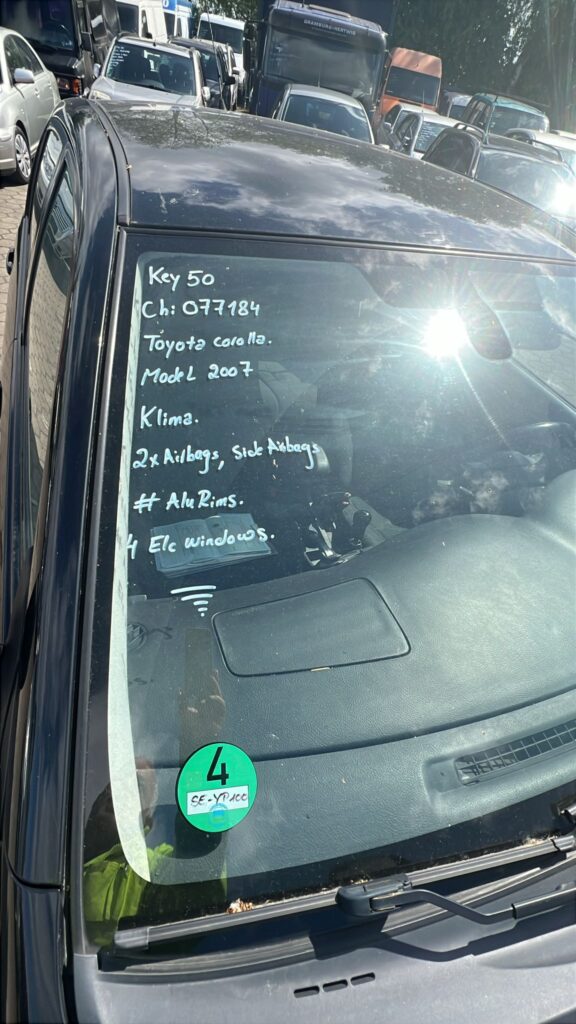 Key 50
Ch: 077184
Toyota corolla.
Model 2007
Klima.
2x Airbags, Side Airbags
# Alu Rims.
4 Elc windows.
4
SE-YP100